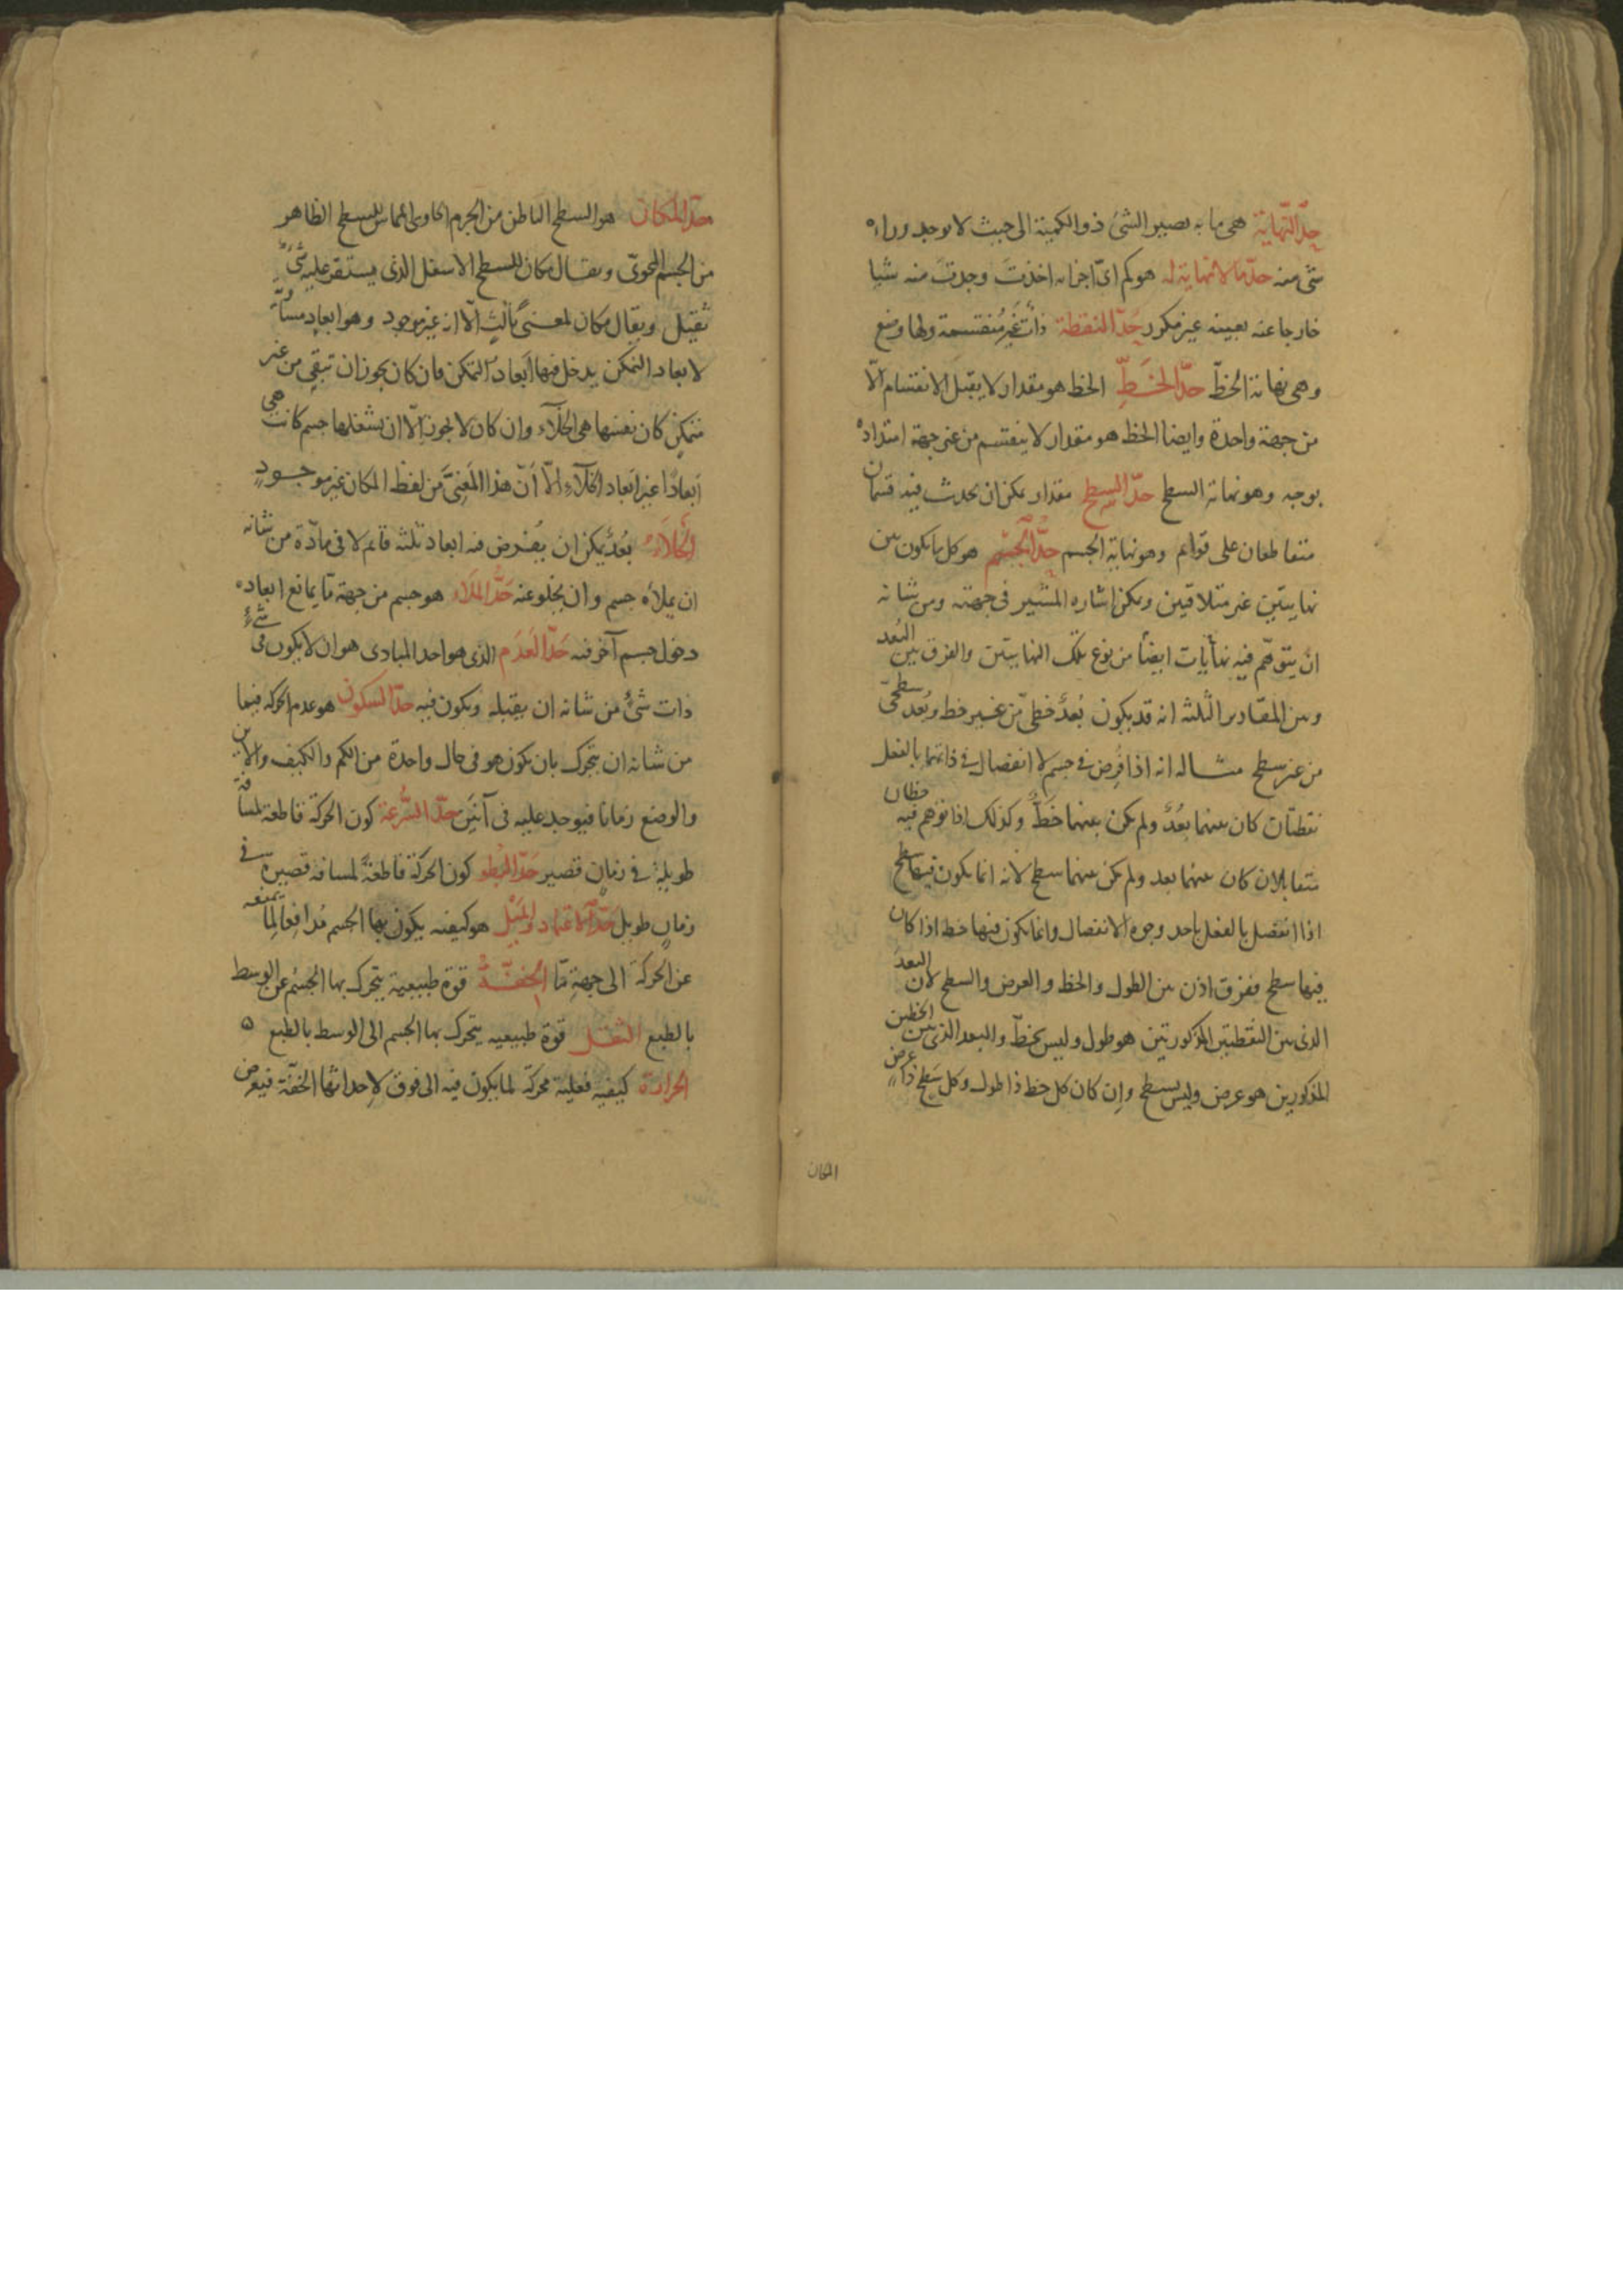 حدّ النّهاية هى ما به يصير الشئ ذو الكمية الى حيث لا يوجد وراءه
شئ منه حدّ ما لا نهاية له هو كم اىّ اجزائه اخذتَ وجدتَ منه شيا
خارجا عنه بعينه غير مكرر حدّ النقطة ذات غير مُنقسمة ولها وضع
وهى نهاية الخطّ حدّ الخطِّ الخط هو مقدار لا يقبل الانقسام الّا
من جهة واحدة وايضا الخط هو مقدار لا ينقسم من غير جهة امتداده
بوجه وهو نهاية السطح حدّ السطح مقدار يمكن ان يحدث فيه قسمان
متقاطعان على قوايم وهو نهاية الجسم حدُّ الجسم هو كل ما يكون بين
نهايتين غير متلاقيتين ويمكن اشاره المشير فى جهته ومن شانه
ان يتوهّم فيه نهايات ايضاً من نوع تلك النهايتين والفرق بين البُعد
وبين المقادير الثلثه انه قد يكون بُعدٌ خطىّ من غير خط وبُعد سطحىّ
من غير سطح مثاله انه اذا فُرِض فى جسم لا انفصال فى ذاتهما بالفعل
نقطتان كان بينهما بُعدٌ ولم يكن بينهما خَطٌّ وكذلك اذا توهم فيه خطان
متقابلان كان بينهما بعد ولم يكن بينهما سطح لانه انما يكون فيها سطح
اذا انفصل بالفعل باحد وجوه الانفصال وانما يكون فيها خط اذا كان
فيها سطح ففرق اذن بين الطول والخط والعرض والسطح لان البعدَ
الذى بين النقطتين المذكورتين هو طول وليس بخطّ والبعد الذى بين الخطين
المذكورين هو عرض وليس بسطح وإن كان كل خط ذا طول وكل سَطح ذا عرض
المكان
حدّ المكان هو السطح الباطن من الجرم الحاوى المماس للسطح الظاهر
من الجسم المحوىّ ويقال مكان للسطح الاسفل الذى يستقر عليه شئٌ
ثقيل ويقال مكان لمعنىً ثالثٍ الّا انه غير موجود وهو ابعاد مساوية
لابعاد المتمكن يدخل فيها ابعاد المتمكن فان كان يجوز ان تبقى من غير
متمكنٍ كان نفسها هى الخلآء وان كان لا يجوز الّا ان يشغلها جسم كانت هى
ابعادًا غير ابعاد الخلآء الّا أنّ هذا المَعنىَ من لفظ المكان غير موجودٍ
الخَلآءُ بُعدٌ يمكن ان يُفرض فيه ابعاد ثلثه قايم لا فى مادّة من شانه
ان يملأه جسم وان يخلو عنه حَدُّ الملاء هو جسم من جهة ما يمانع ابعاده
دخول جسم آخر فيه حَدّ العَدَم الذى هو احد المبادى هو ان لا يكون فى شئ
ذات شئ من شانه ان يقبله ويكون فيه حدّ السكون هو عدم الحركه فيما
من شانه ان يتحرك بان يكون هو فى حال واحدة من الكم والكيف والاين
والوضع زمانا فيوجد عليه فى آنَين حدّ السُّرعة كون الحركة قاطعة لمسافة
طويلةٍ فى زمانٍ قصير حَدّ البُطو كون الحركة قاطعةً لمسافة قصيرة فى
زمانٍ طويل حدّ الاعتماد والمَيْل هو كيفيه يكون بها الجسم مُدافِعا لِما يمنعه
عن الحركةَ الى جهةٍ مّا الخفّةُ قوة طبيعية يتحرك بها الجسم عن الوسط
بالطبع الثقل قوة طبيعيه يتحرك بها الجسم الى الوسط بالطبع ٥
الحرارة كيفيه فعلية محركة لما يكون فيه الى فوق لإحداثها الخفّة فيعرض